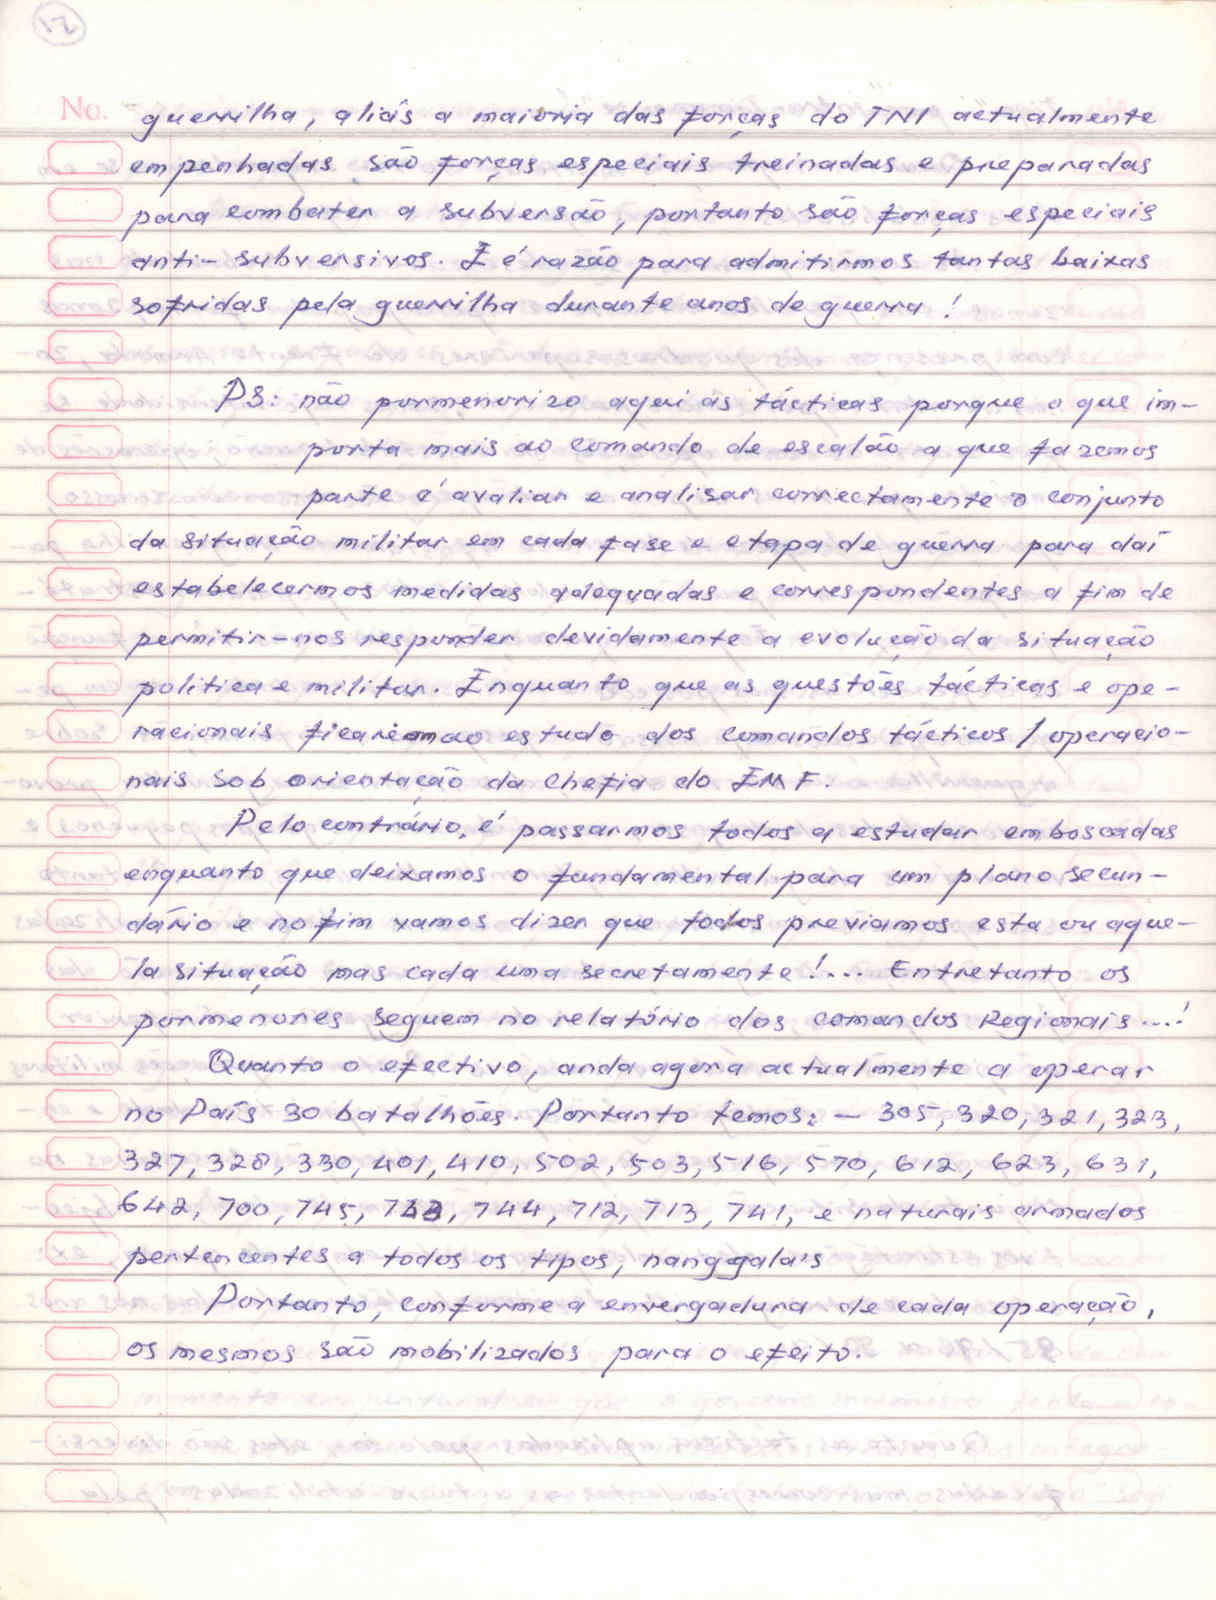 No.
guerrilha, aliás a maioria das forças do TNI actualmente
empenhadas são forças especiais treinadas e preparadas
para combater a subversão, portanto são forças especiais
anti-subversivos. E é razão para admitirmos tantas baixas
sofridas pela guerrilha durante anos de guerra!
PS: não pormenorizo aqui as tácticas porque o que im-
porta mais ao comando de escalão a que fazemos
parte é avaliar e analisar correctamente o conjunto
da situação militar em cada fase e etapa de guerra para daí
estabelecermos medidas adequadas e correspondentes a fim de
permitir-nos responder devidamente a evolução da situação
politica e militar. Enquanto que as questões tácticas e ope-
racionais ficariam ao estudo dos comandos tácticos / operacio-
nais sob orientação da Chefia do EMF.
Pelo contrário, é passarmos todos a estudar emboscadas
enquanto que deixamos o fundamental para um plano secun-
dário e no fim vamos dizer que todos previamos esta ou aque-
la situação mas cada uma secretamente!... Entretanto os
pormenores seguem no relatório dos comandos Regionais....!
Quanto o efectivo, anda agora actualmente a operar
no País 30 batalhões. Portanto temos: - 305, 320, 321, 323,
327, 328, 330, 401, 410, 502, 503, 516, 570, 612, 623, 631,
642, 700, 745, 743, 744, 712, 713, 741, e naturais armados
pertencentes a todos os tipos, nanggala's
Portanto, conforme a envergadura de cada operação,
os mesmos são mobilizados para o efeito.